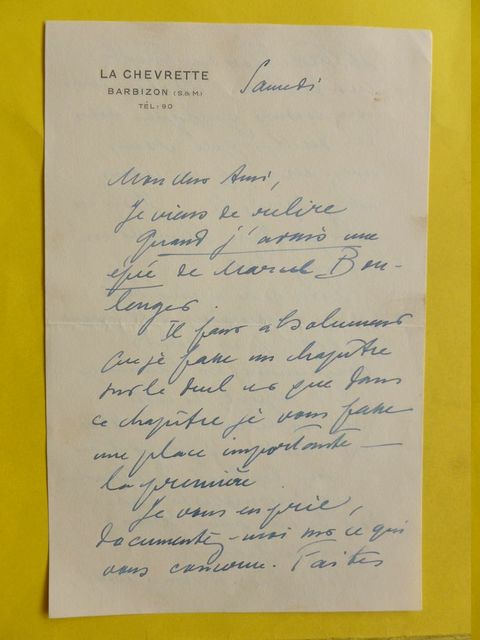 LA CHEVRETTE
BARBIZON (S.&M.)
TÉL: 90
Samedi
Mon cher Ami,
Je viens de relire
Quand j'avais une
épée de Marcel Bou-
lenger.
Il faut absolument
que je fasse un chapître
sur le duel et que dans
ce chapître je vous fasse
une place importante —
la première.
Je vous en prie,
documentez-moi sur ce qui
vous concerne. Faites